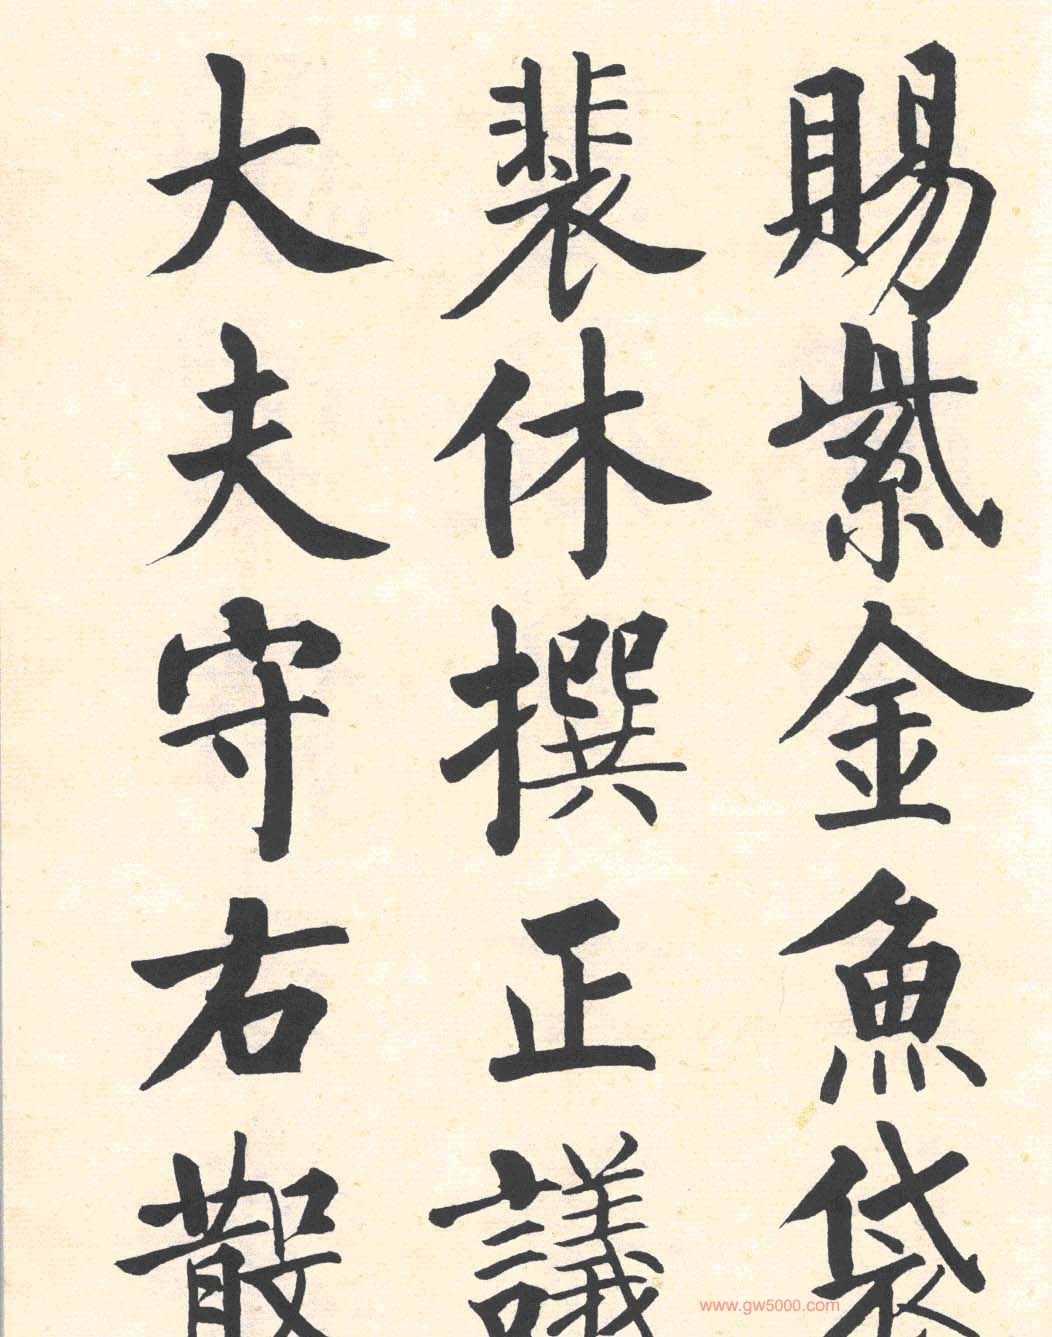 賜紫金魚袋
裴休撰正議
大夫守右散
www.gw5000.com